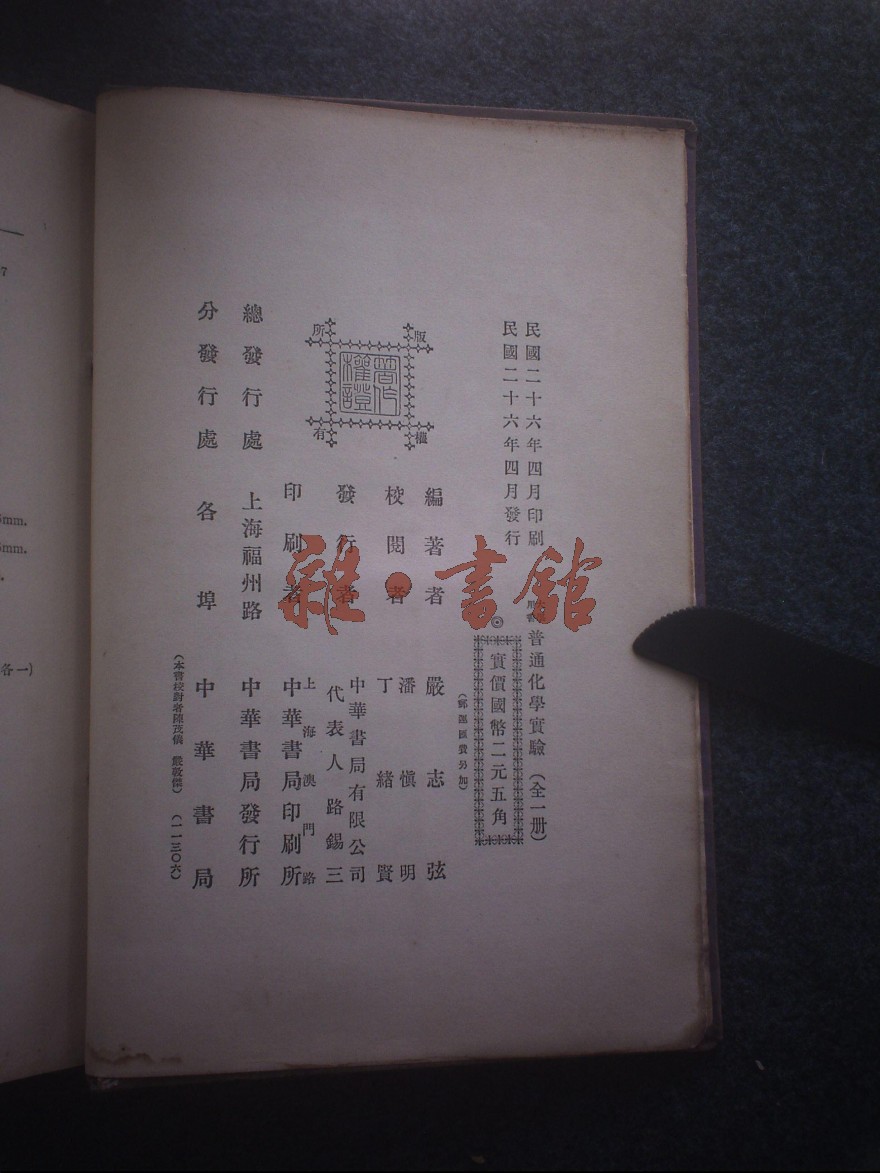 民國二十六年四月印刷
民國二十六年四月發行
普通化學實驗（全一册）
◎
實價國幣二元五角
（郵運匯費另加）
編著者 嚴志弦
校閱者 潘愼明
丁緒賢
發行者 中華書局有限公司
代表人 路錫三
印刷者 上海澳門路
中華書局印刷所
總發行處 上海福州路 中華書局發行所
分發行處 各埠 中華書局
（本書校對者陳茂儔 嚴敦傑）（一一三〇六）
版權所有
著作權證
雜·書館
7
mm.
mm.
各一）